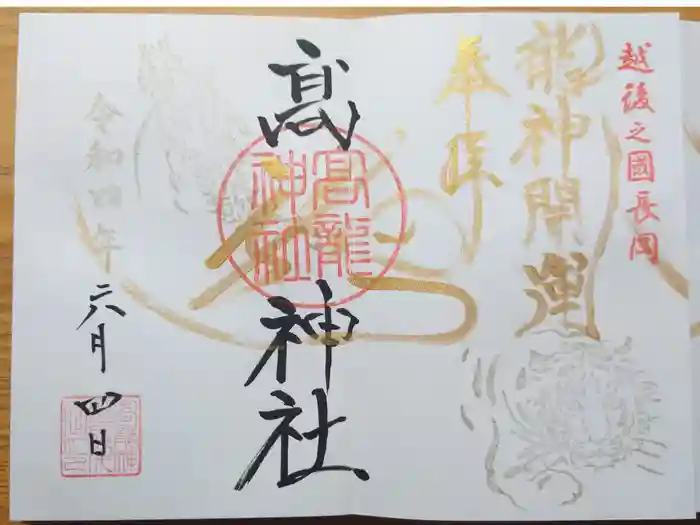 越後之國長岡
龍神開運
奉拝
高龍神社
高龍神社
令和四年六月四日